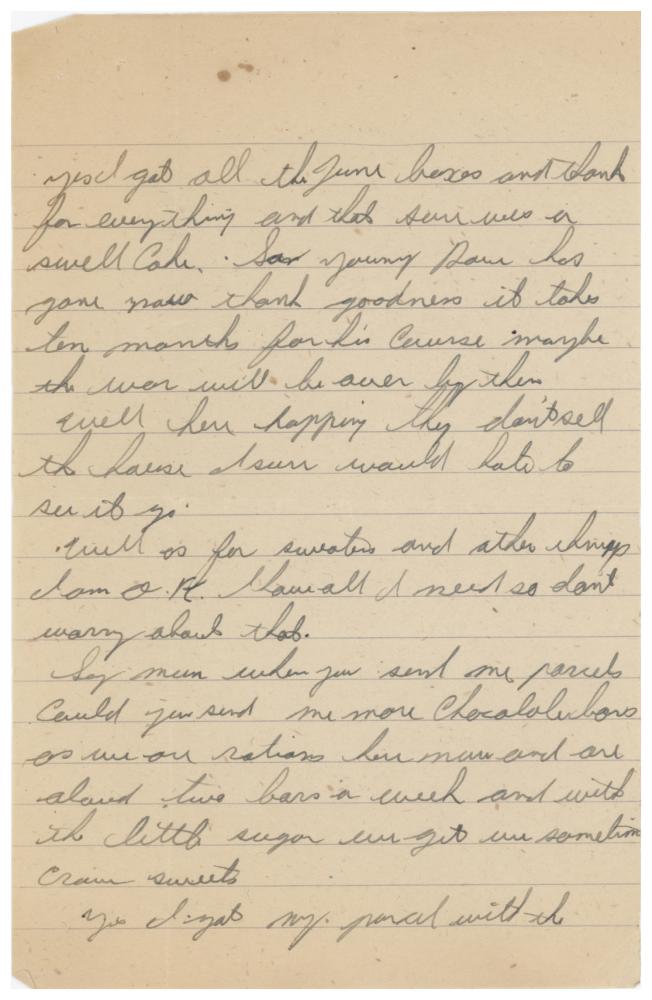 yes I got all the June boxes and thank
for everything and that sure was a
swell Cake. So young Dave has
gone now thank goodness it takes
ten months for his Course maybe
the war will be over by then
Well here hopping they don't sell
the house I sure would hate to
see it go.
Well as for sweaters and other things
I am O.K. I have all I need so don't
worry about that.
Say mum when you send me parcels
Could you send me more Chocolate bars
as we are rations here now and are
aloud two bars a week and with
the little sugar we get we sometim
crave sweets
Yes I got my parcel with the